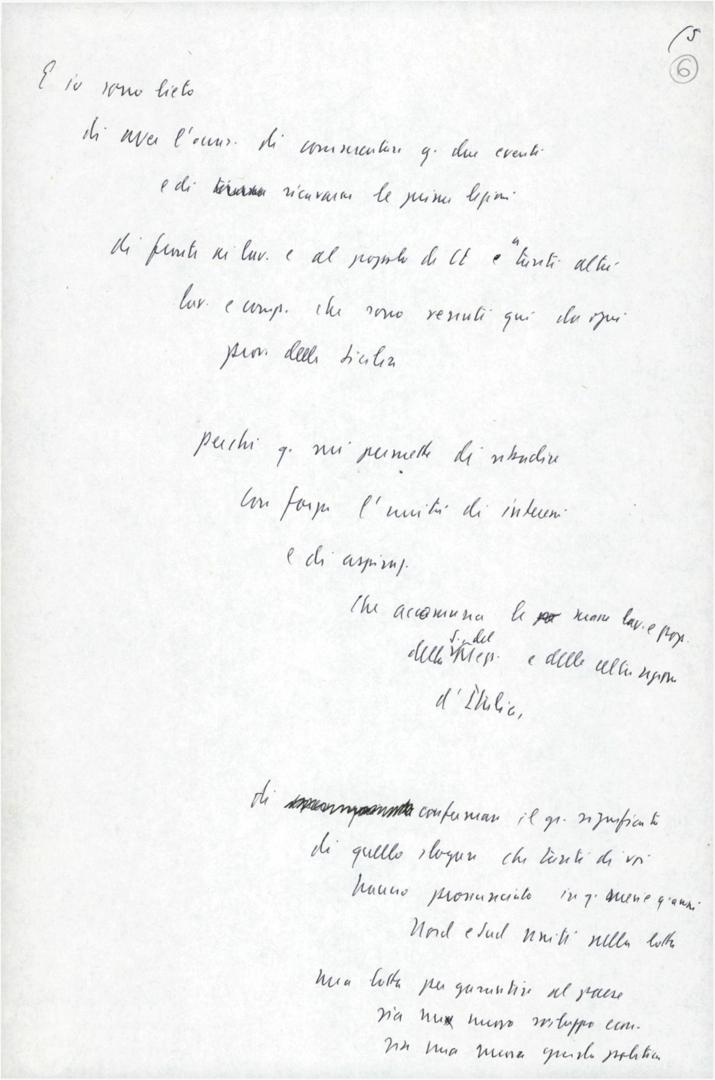 15
6
E io sono lieto
di aver l'onor. di commentare q. due eventi
e di ricavarne le prime lezioni
di fronte ai lav. e al popolo di Ct e tanti altri
lav. e comp. che sono venuti qui da ogni
prov. della Sicilia
perché q. mi permette di ribadire
con forza l'unità di interessi
e di aspiraz.
che accomuna le masse lav. e pop.
della S. e del Mezz. e delle altre regioni
d'Italia,
di confermare il gr. significato
di quello slogan che tanti di voi
hanno pronunciato in q. mesi e q. anni
Nord e Sud uniti nella lotta
una lotta per garantire al paese
sia un nuovo sviluppo econ.
sia una nuova guida politica